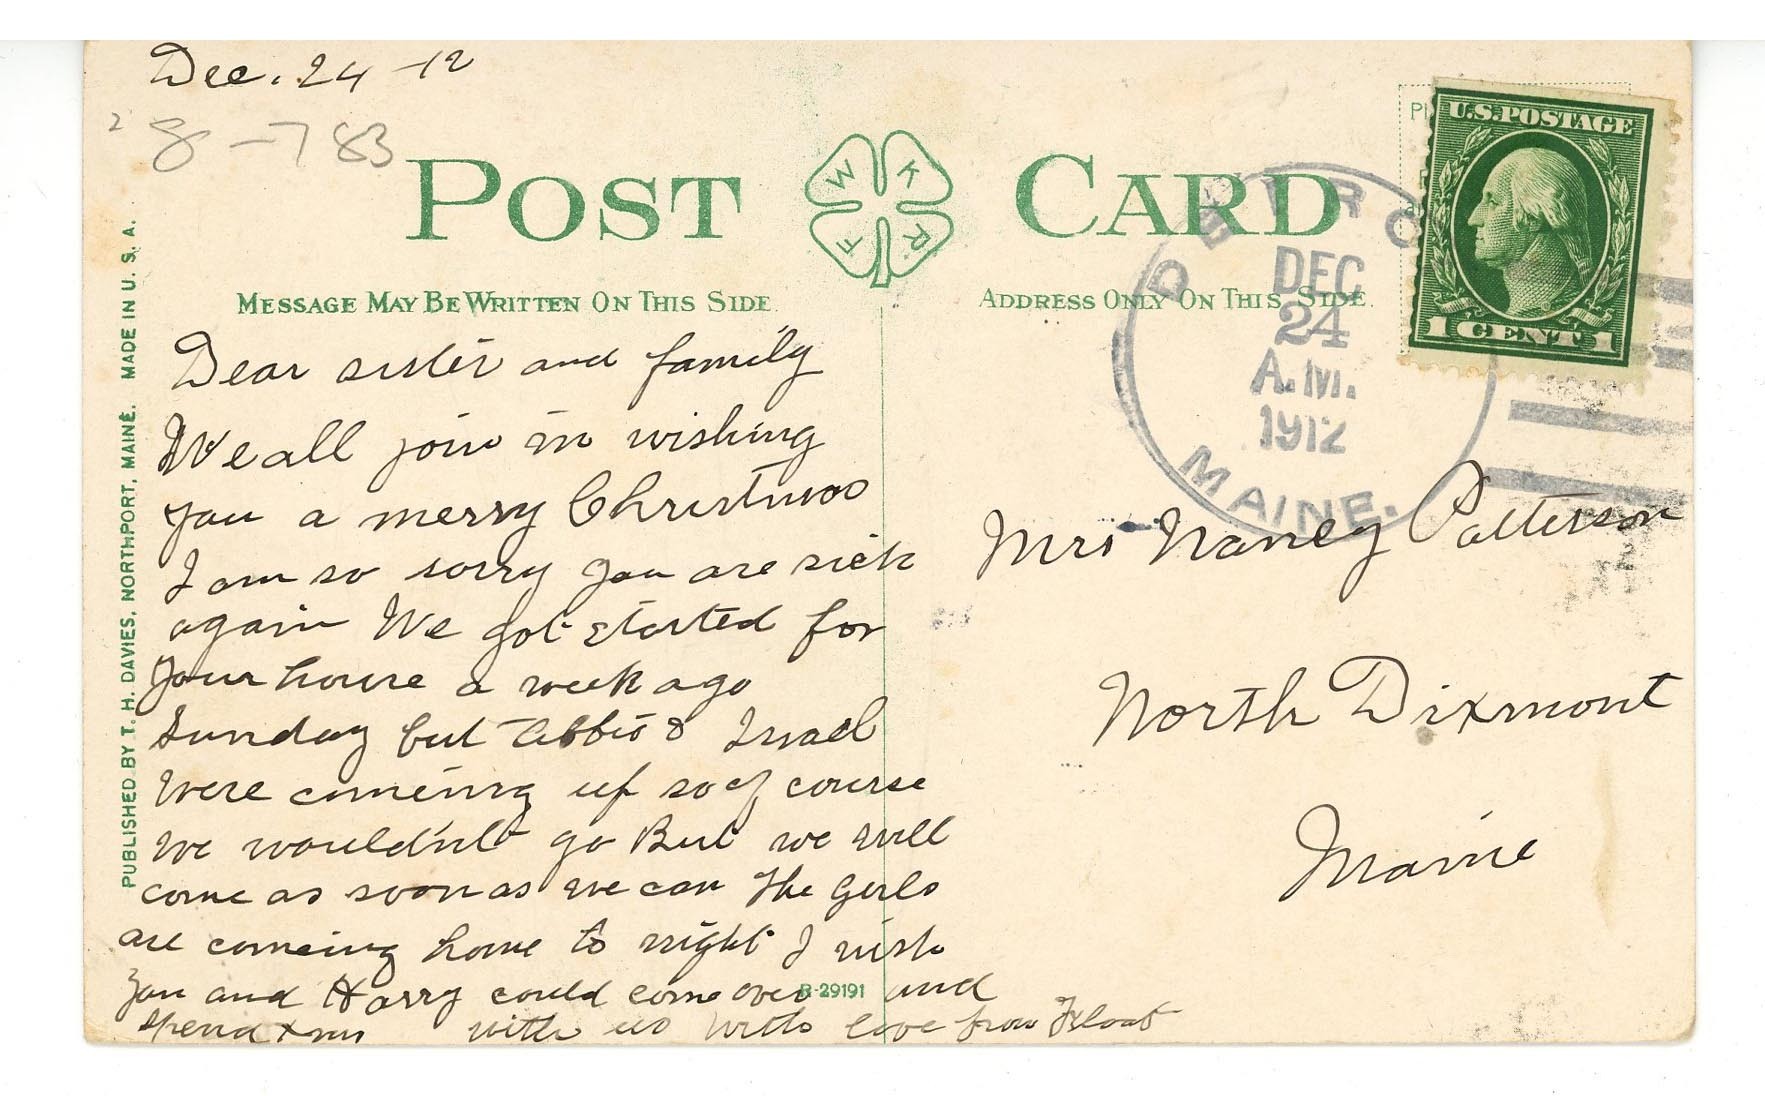 Dec. 24 -12
2
8-783
POST CARD
W K F R
MESSAGE MAY BE WRITTEN ON THIS SIDE
ADDRESS ONLY ON THIS SIDE.
PUBLISHED BY T. H. DAVIES, NORTHPORT, MAINE. MADE IN U. S. A.
U.S. POSTAGE
1 CENT 1
DETRO
DEC
24
A.M.
1912
MAINE.
Dear sister and family
We all join in wishing
you a merry Christmas
I am so sorry you are sick
again We got started for
your house a week ago
Sunday but Abbie & Israel
were comeing up so of course
we wouldn't go But we will
come as soon as we can The girls
are comeing home to night I wish
you and Harry could come over and
spend xmas with us With love from
B-29191
Mrs Nancy Patterson
North Dixmont
Maine